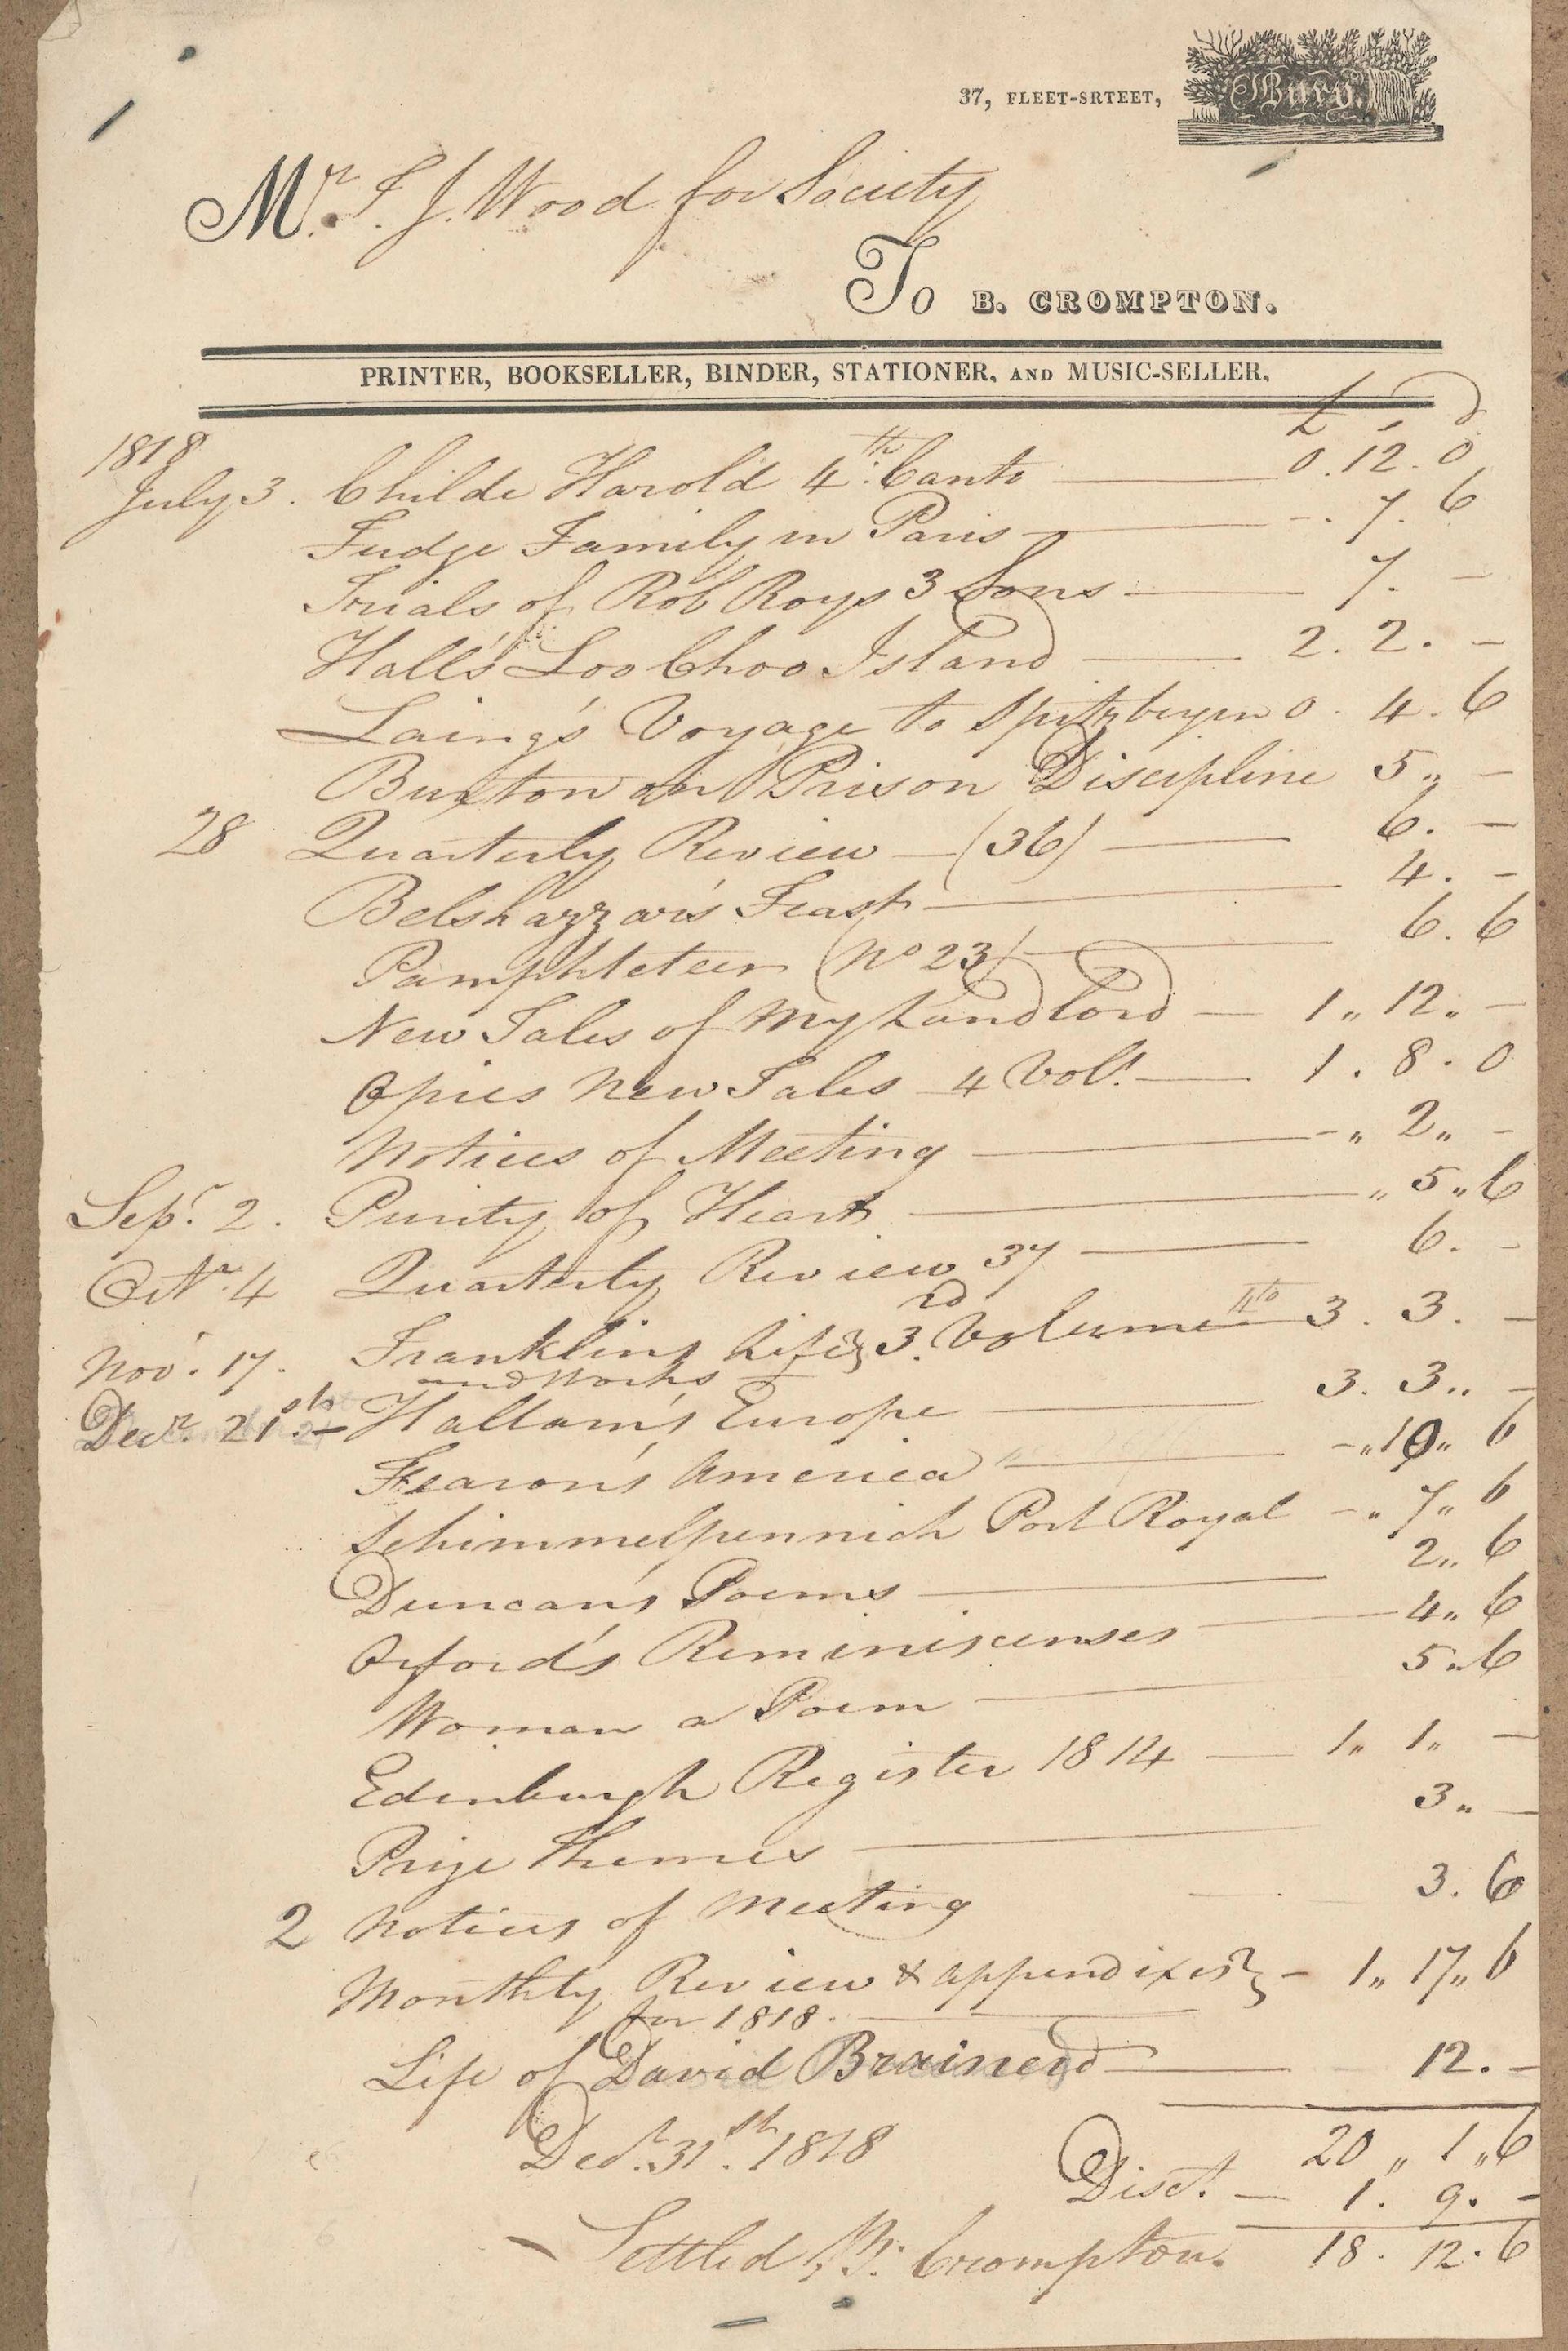 37, FLEET-SRTEET, Bury.
Mr. F. J. Wood for Society
To B. CROMPTON.
PRINTER, BOOKSELLER, BINDER, STATIONER, AND MUSIC-SELLER.
£ , d
1818
July 3. Childe Harold 4th. Canto — 0.12.0
Fudge Family in Paris — -. 7. 6
Trials of Rob Roys 3 Sons — 7. -
Hall's Loo Choo Island — 2. 2. -
Laing's Voyage to Spitzbergen 0. 4. 6
Buxton on Prison Discipline 5,, -
28 Quarterly Review — (36) — 6. -
Belshazzar's Feast — 4. -
Pamphleteer (No 23) — 6. 6
New Tales of My Landlord — 1,, 12,, -
Opies New Tales 4 Vols. — 1. 8. 0
Notices of Meeting — -,, 2,, -
Sepr. 2. Purity of Heart — ,, 5,, 6
Octr. 4 Quarterly Review 37 — 6. -
Nov. 17. Franklins Life } 3rd. Volume 4to 3. 3. -
and Works
Decr. 21st. - Hallam's Europe — 3. 3,, -
Fearon's America — -,, 10,, 6
Schimmelpennick Port Royal -,, 7,, 6
Duncan's Poems — 2,, 6
Orford's Reminiscenses — 4,, 6
Woman a Poem — 5,, 6
Edinburgh Register 1814 — 1,, 1,, -
Prize Themes — 3,, -
2 Notices of Meeting — 3. 6
Monthly Review & appendixes } - 1,, 17,, 6
for 1818. —
Life of David Brainerd — 12. -
20 ,, 1 ,, 6
Decr. 31st. 1818 Disct. — 1. 9. -
— Settled, B. Crompton. 18. 12. 6